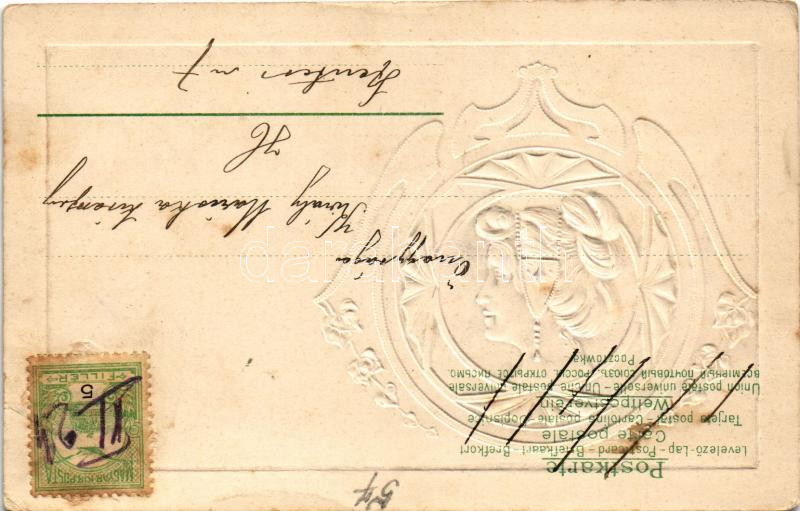 Postkarte
Levelező-Lap - Postcard - Briefkaart - Brefkort
Carte postale
Tarjeta postal - Cartolina postale - Dopisnice
Weltpostverein
Union postale universelle - Unione postale universale
ВСЕМІРНЫЙ ПОЧТОВЫЙ СОЮЗЪ. РОССІЯ. ОТКРЫТОЕ ПИСЬМО.
Pocztówka
Őnagysága
Király Mariska
H
MAGYAR KIR. POSTA
5
FILLÉR
darabanth